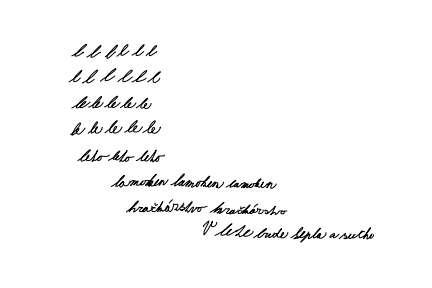 l l l l l l
l l l l l l
le le le le le
le le le le le
leto leto leto
lamohen lamohen lamohen
hračkárstvo hračkárstvo
V lete bude tepla a sucho